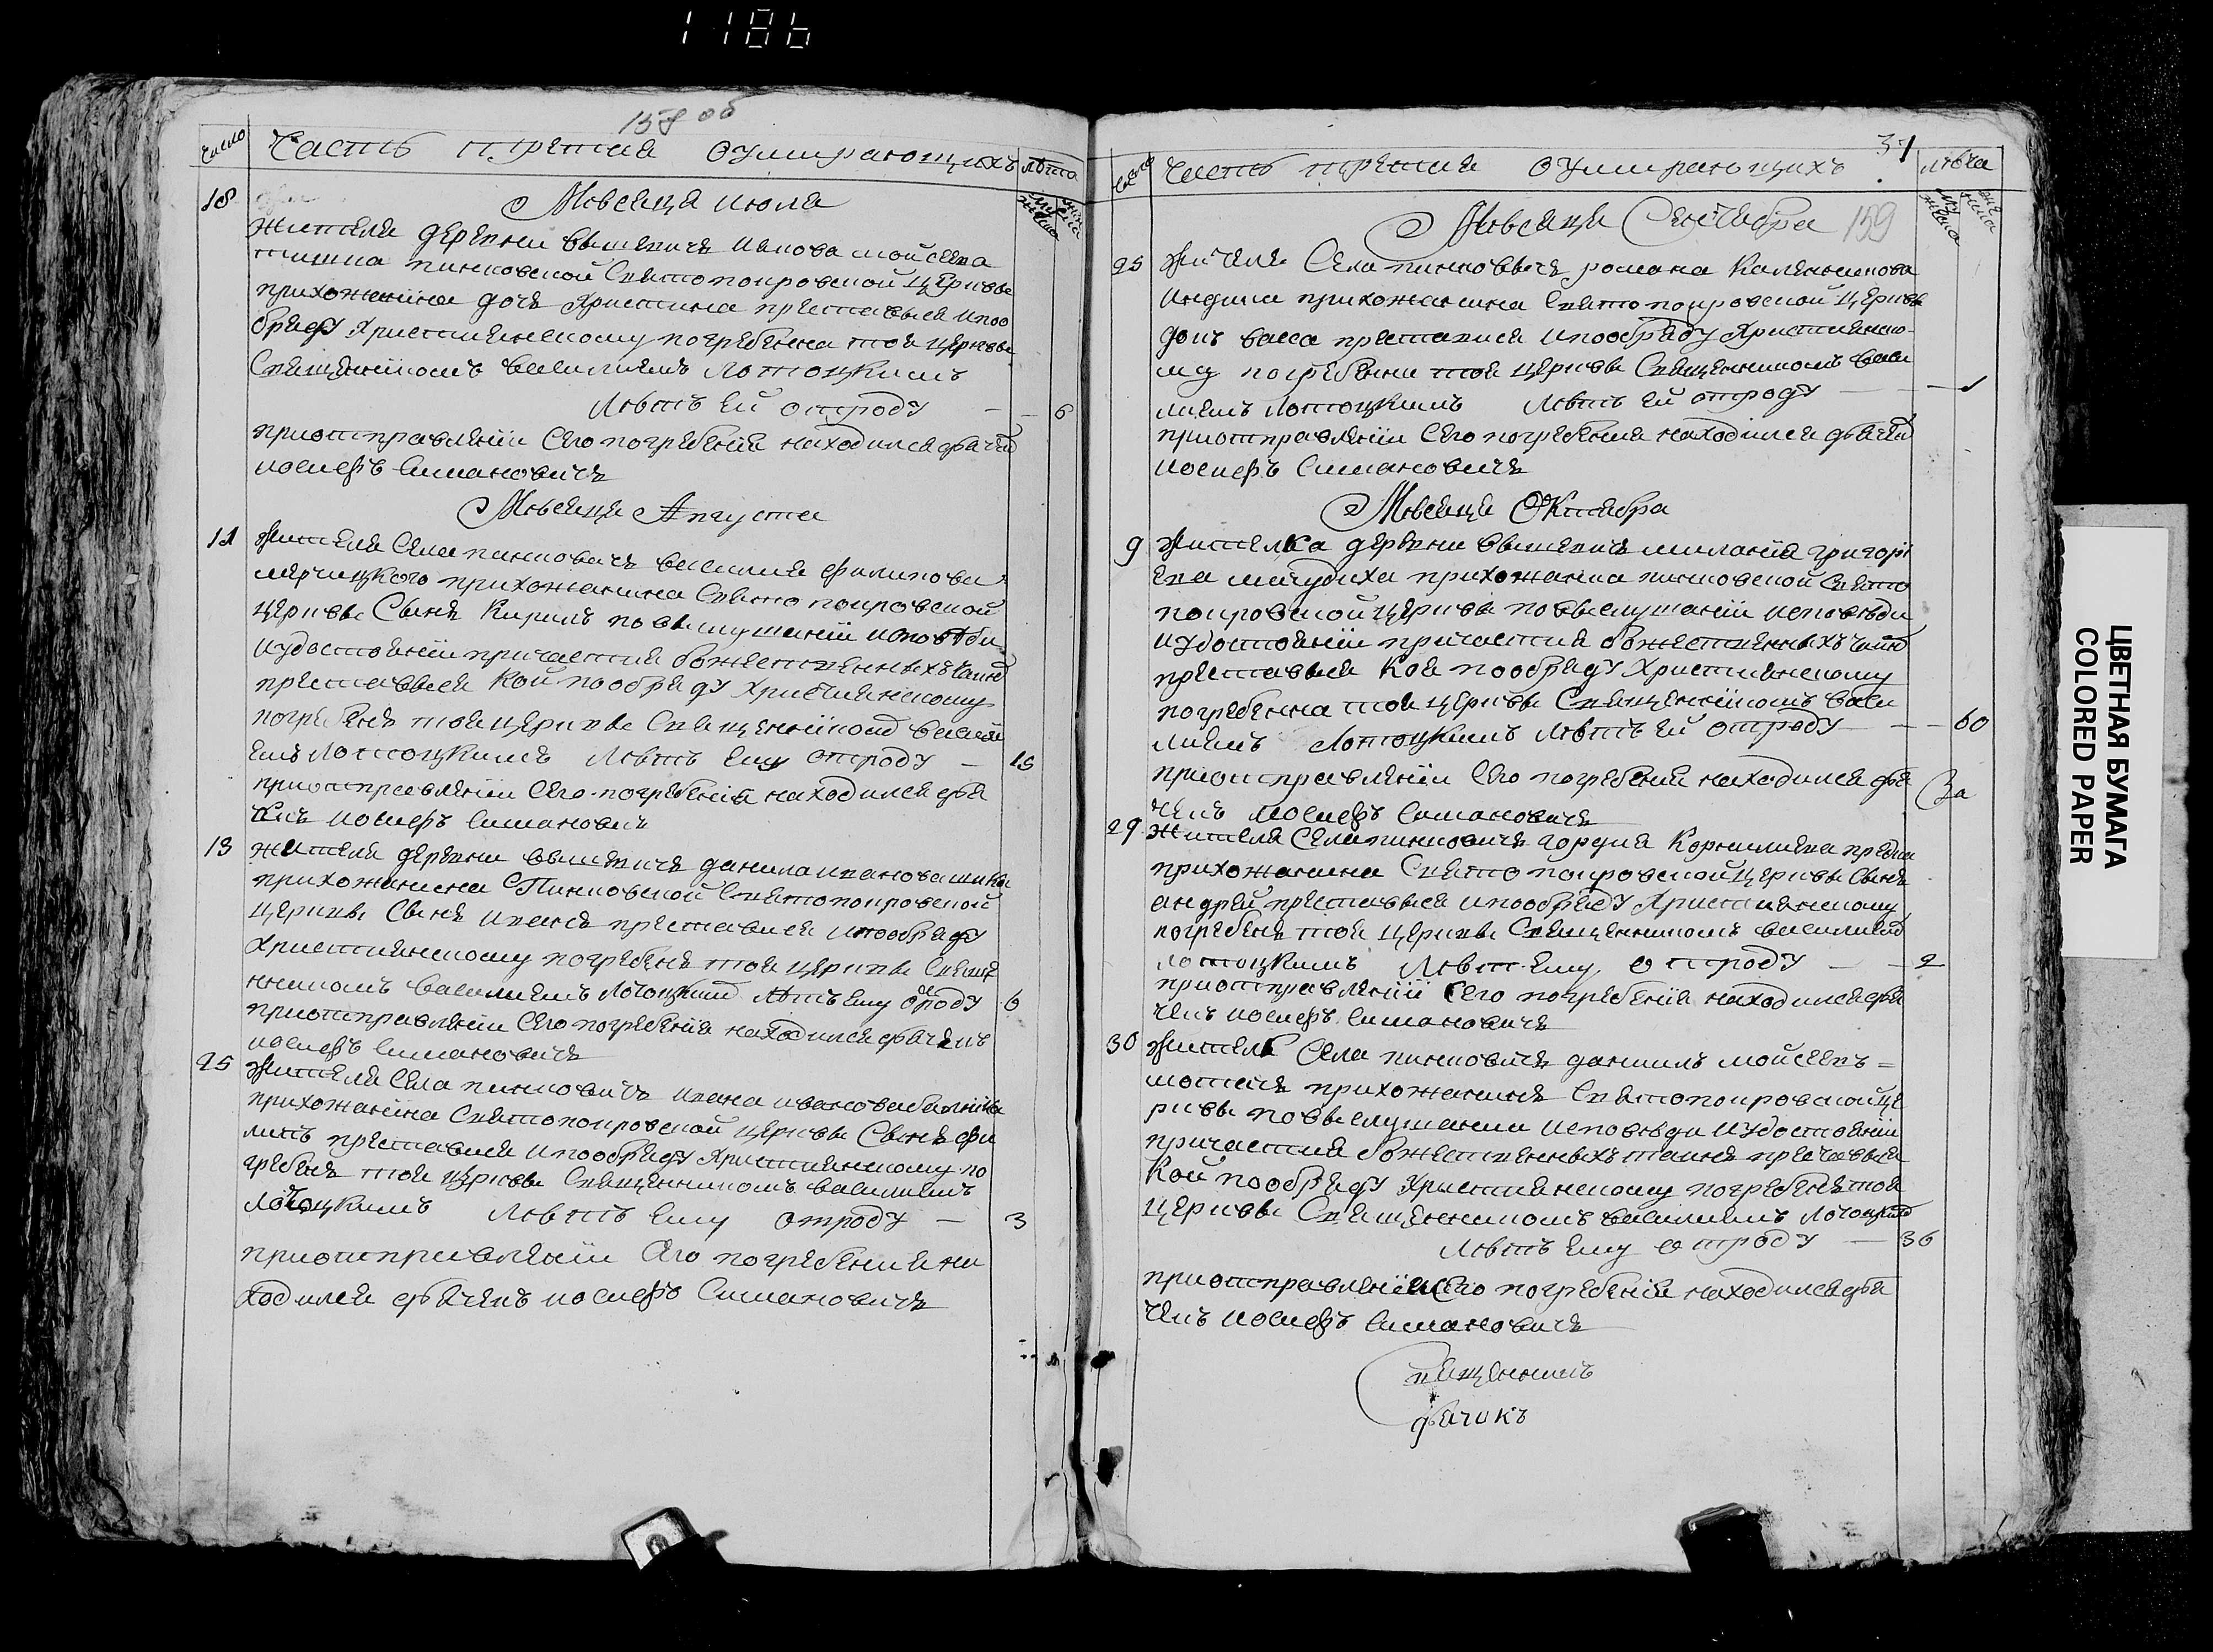 1186
158 об
число Часть третия оумирающихъ лѣта
мужеска женска
Мѣсяца июля
18 жителя деревни вышевичъ иакова мойсеева
тишка пинковской Святопокровской церкве
прихожанина дочъ Христина преставися и поо
бряду Християнскому погребенна тоя церкве
Священникомъ василиемъ Лотоцкимъ
Лѣтъ ей отроду — 6
при отправлении сего погребения находился дячокъ
иосифъ симановичъ
Мѣсяца Августа
11 жителя села пинковичъ василия филипова
прихожанина Святопокровской
церкве Сынъ Кирилъ по выслушании исповѣди
и удостоянии причастия божественныхъ таинъ
преставися кой по обряду християнскому
погребенъ тоя церкве Священникомъ васили
емъ Лотоцкимъ Лѣтъ ему отроду — 15
при отправлении сего погребения находился дя
чокъ иосифъ симановичъ
13 жителя деревни вышевичъ данила иванова
прихожанина Пинковской Святопокровской
церкве Сынъ иванъ преставися и по обряду
Християнскому погребенъ тоя церкве Свяще
нникомъ василиемъ Лотоцкимъ лѣтъ ему отроду 6
при отправлении сего погребения находился дячокъ
иосифъ симановичъ
25 жителя села пинковичъ ивана иванова
прихожанина Святопокровской церкве Сынъ фи
липъ преставися и по обряду Християнскому по
гребенъ тоя церкве Священникомъ василиемъ
Лотоцкимъ Лѣтъ ему отроду — 3
при отправлении сего погребения на
ходился дячокъ иосифъ Симановичъ
31
число Часть третия оумирающихъ лѣта
мужеска женска
Мѣсяца Сентября 159
25 жителя Села пинковичъ романа
прихожанина Святопокровской церкве
дочъ васса преставися и по обряду Християнско
му погребенна тоя церкве Священникомъ васи
лиемъ Лотоцкимъ Лѣтъ ей отроду — 1
при отправлении сего погребения находился дячокъ
иосифъ симановичъ
Мѣсяца Октября
9 жителка деревни вышевичъ милания григорі
ева прихожанка пинковской Свято
покровской церкве по выслушании исповѣди
и удостоянии причастия божественныхъ таинъ
преставися коя по обряду Християнскому
погребенна тоя церкве Священникомъ васи
лиемъ Лотоцкимъ Лѣтъ ей отроду — 60
при отправлении сего погребения находился дя
чокъ иосифъ симановичъ
29 жителя Села пинковичъ гордия Корнилиева
прихожанина Святопокровской церкве Сынъ
андрей преставися и по обряду Християнскому
погребенъ тоя церкве Священникомъ василиемъ
Лотоцкимъ Лѣтъ ему отроду — 2
при отправлении сего погребения находился дя
чокъ иосифъ симановичъ
30 житель Села пинковичъ даниилъ мойсеевъ =
прихожанинъ Святопокровской це
ркве по выслушании исповѣди и удостоянии
причастия божественныхъ таинъ преставися
кой по обряду Християнскому погребенъ тоя
церкве Священникомъ василиемъ Лотоцкимъ
Лѣтъ ему отроду — 36
при отправлении сего погребения находился дя
чокъ иосифъ симановичъ
Священникъ
дячокъ
ЦВЕТНАЯ БУМАГА
COLORED PAPER